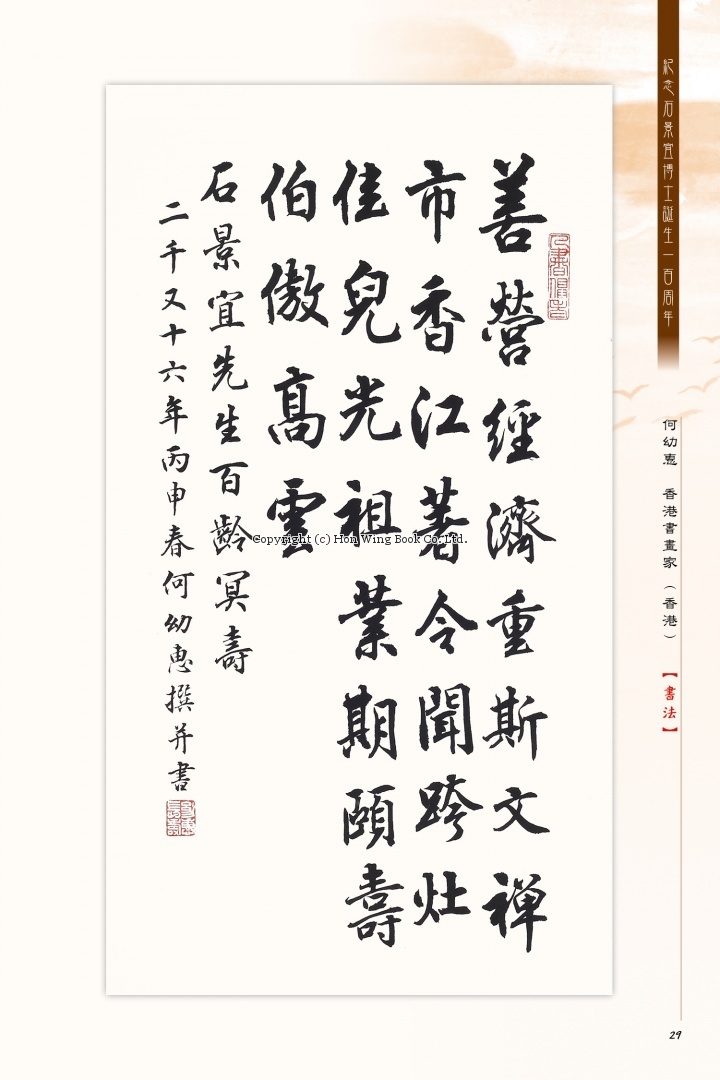 善營經濟重斯文禪
市香江著令聞跨灶
佳兒光祖業期頤壽
伯傲高雲
石景宜先生百齡冥壽
二千又十六年丙申春何幼惠撰并書
紀念石景宜博士誕生一百周年
何幼惠 香港書畫家（香港）【書法】
Copyright (c) Hon Wing Book Co. Ltd.
29